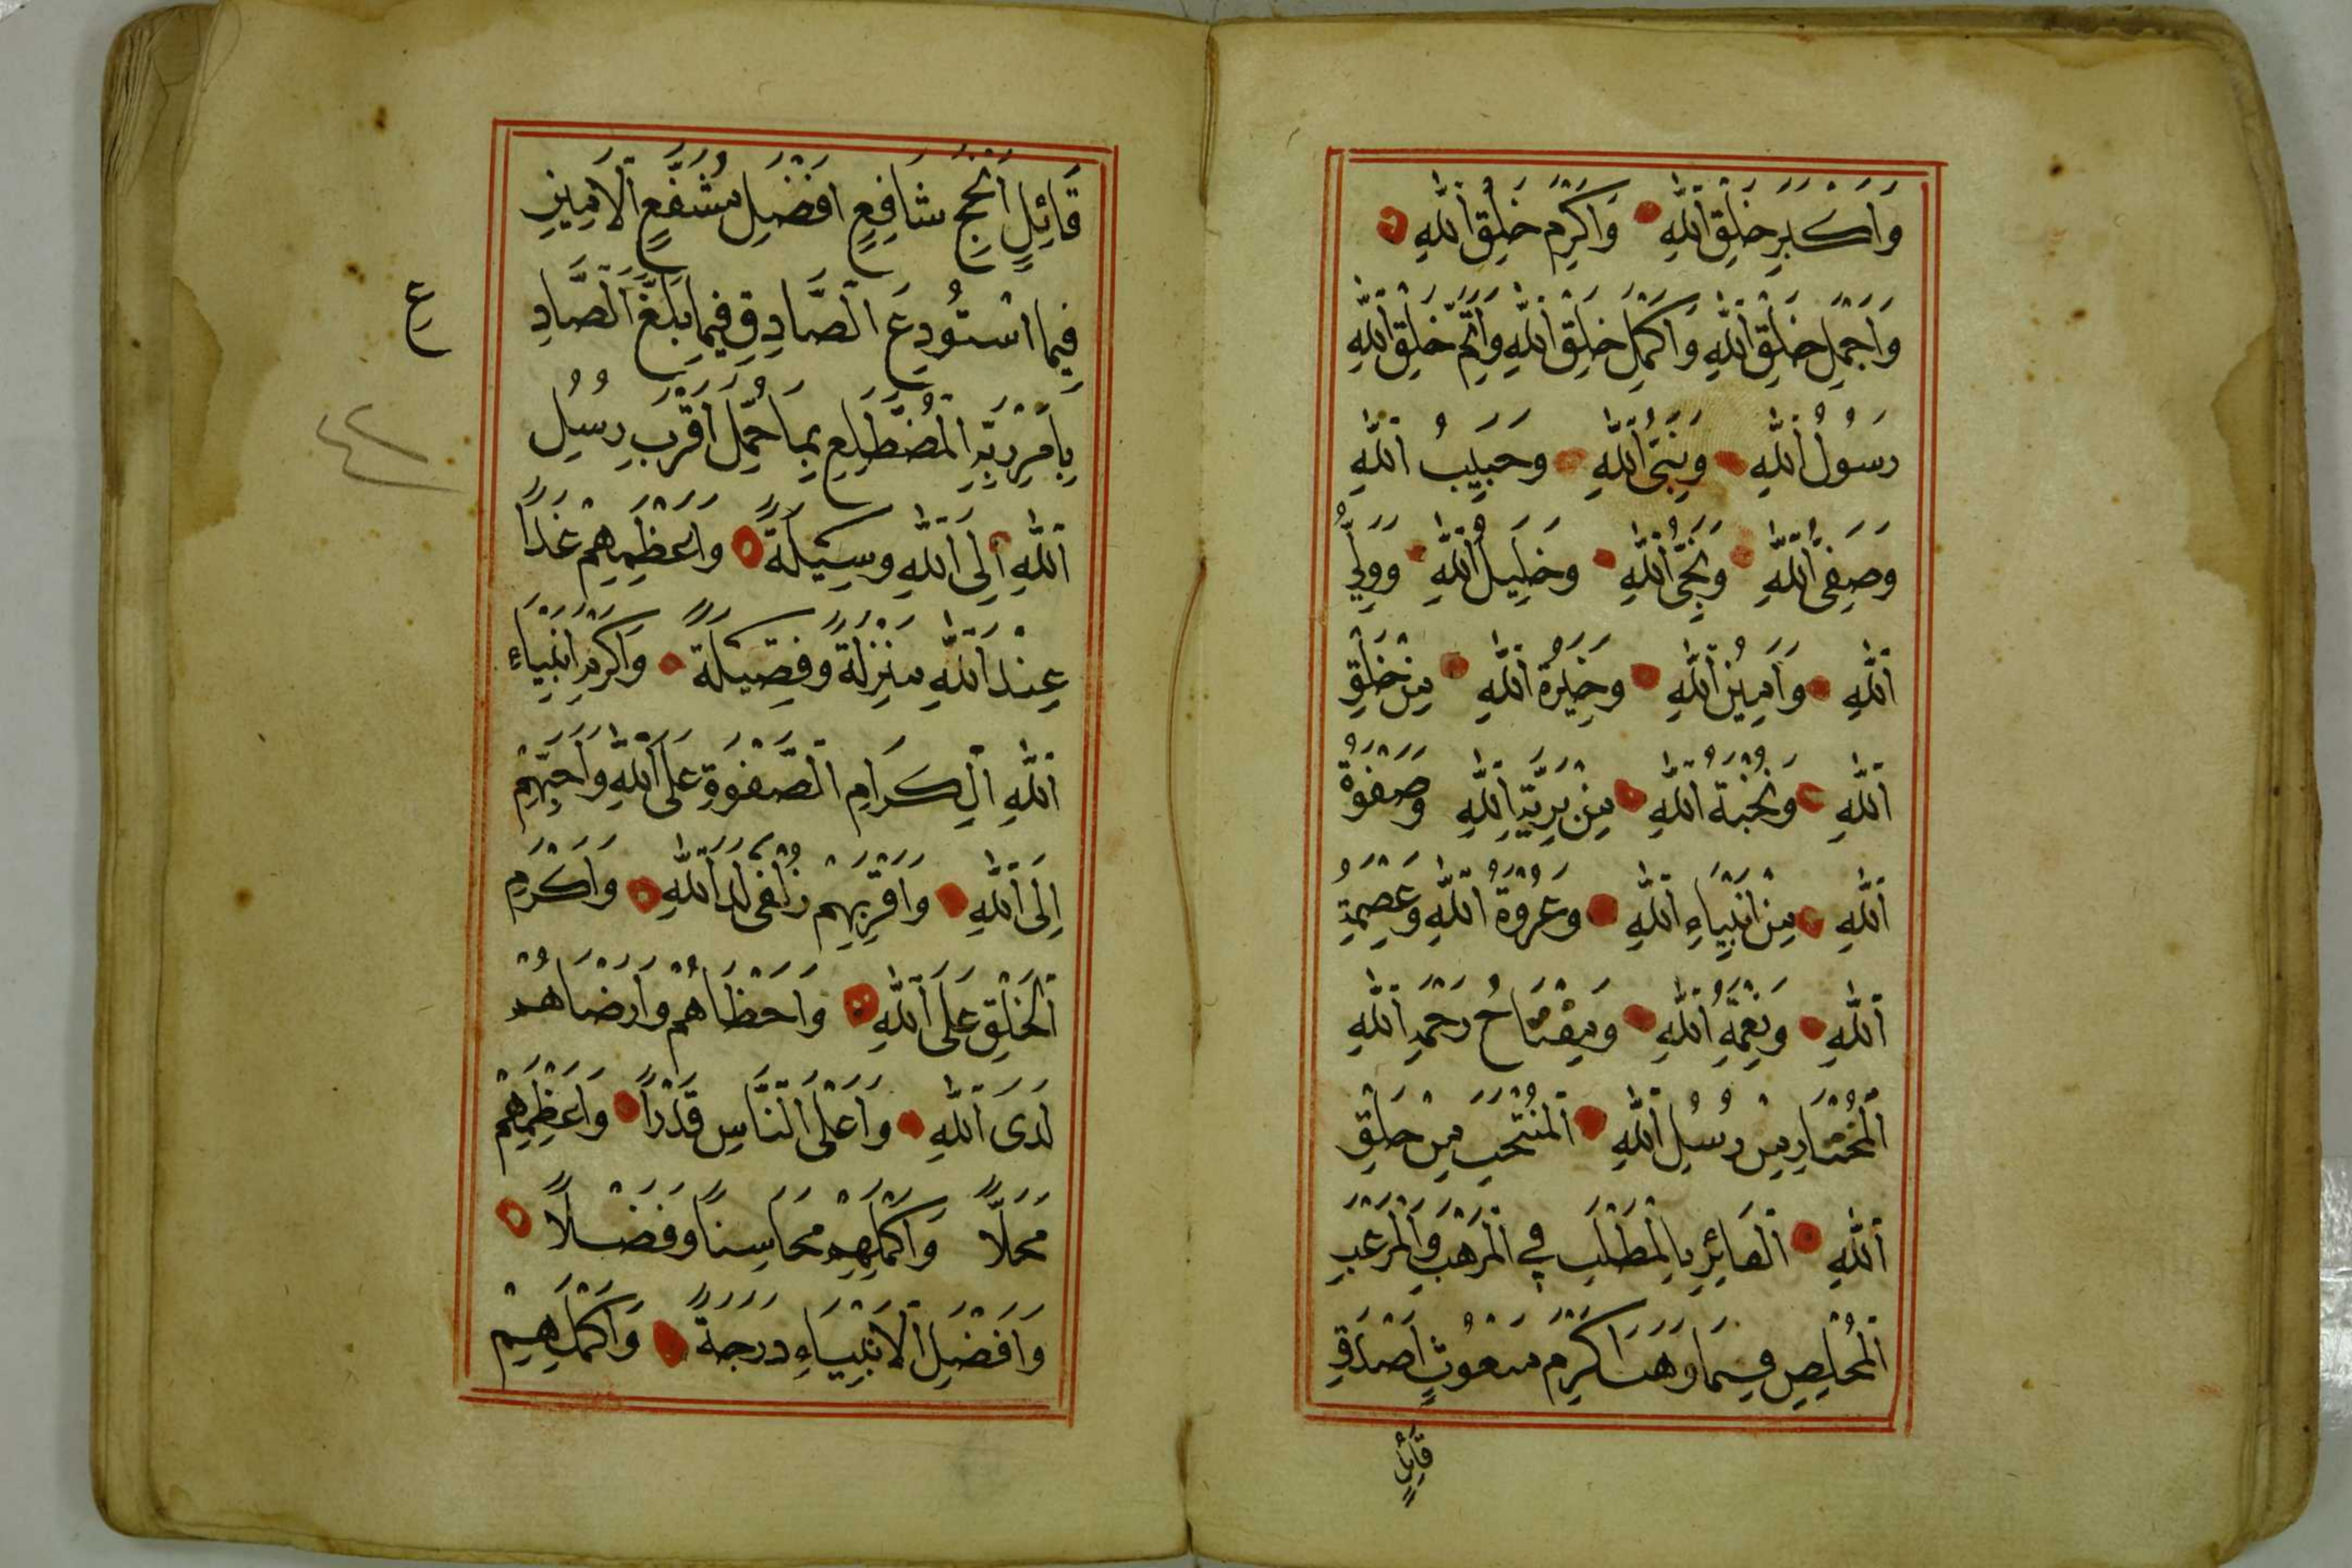 وَاَكْبَرِ خَلْقِ اللّٰهِ وَاَكْرَمِ خَلْقِ اللّٰهِ
وَاَجْمَلِ خَلْقِ اللّٰهِ وَاَكْمَلِ خَلْقِ اللّٰهِ وَاَتَمِّ خَلْقِ اللّٰهِ
رَسُوْلُ اللّٰهِ وَنَبِيُّ اللّٰهِ وَحَبِيْبُ اللّٰهِ
وَصَفِيُّ اللّٰهِ وَنَجِيُّ اللّٰهِ وَخَلِيْلُ اللّٰهِ وَوَلِيُّ
اللّٰهِ وَاَمِيْنُ اللّٰهِ وَخِيَرَةُ اللّٰهِ مِنْ خَلْقِ
اللّٰهِ وَنُخْبَةُ اللّٰهِ مِنْ بَرِيَّةِ اللّٰهِ وَصَفْوَةُ
اللّٰهِ مِنْ اَنْبِيَاءِ اللّٰهِ وَعُرْوَةُ اللّٰهِ وَعِصْمَةُ
اللّٰهِ وَنِعْمَةُ اللّٰهِ وَمِفْتَاحُ رَحْمَةِ اللّٰهِ
اَلْمُخْتَارِ مِنْ رُسُلِ اللّٰهِ اَلْمُنْتَخَبِ مِنْ خَلْقِ
اللّٰهِ اَلْفَائِزِ بِالْمَطْلَبِ فِي الْمَرْهَبِ وَالْمَرْغَبِ
اَلْمُخْلِصِ فِيْمَا وَهَبَ اَكْرَمِ مَبْعُوْثٍ اَصْدَقِ
قَائِلٍ
قَائِلٍ اَنْجَحِ شَافِعٍ اَفْضَلِ مُشَفَّعٍ اَلْاَمِيْنِ
فِيْمَا اسْتُوْدِعَ اَلصَّادِقِ فِيْمَا بَلَّغَ اَلصَّادِ
بِاَمْرِ رَبِّهِ اَلْمُضْطَلِعِ بِمَا حُمِّلَ اَقْرَبِ رُسُلِ
اللّٰهِ اِلَى اللّٰهِ وَسِيْلَةً وَاَعْظَمِهِمْ غَدًا
عِنْدَ اللّٰهِ مَنْزِلَةً وَفَضِيْلَةً وَاَكْرَمِ اَنْبِيَاءِ
اللّٰهِ اَلْكِرَامِ اَلصَّفْوَةِ عَلَى اللّٰهِ وَاَحَبِّهِمْ
اِلَى اللّٰهِ وَاَقْرَبِهِمْ زُلْفٰى لَدَى اللّٰهِ وَاَكْرَمِ
اَلْخَلْقِ عَلَى اللّٰهِ وَاَحْظَاهُمْ وَاَرْضَاهُمْ
لَدَى اللّٰهِ وَاَعْلَى النَّاسِ قَدْرًا وَاَعْظَمِهِمْ
مَحَلًّا وَاَكْمَلِهِمْ مَحَاسِنًا وَفَضْلًا
وَاَفْضَلِ الْاَنْبِيَاءِ دَرَجَةً وَاَكْمَلِهِمْ
ع